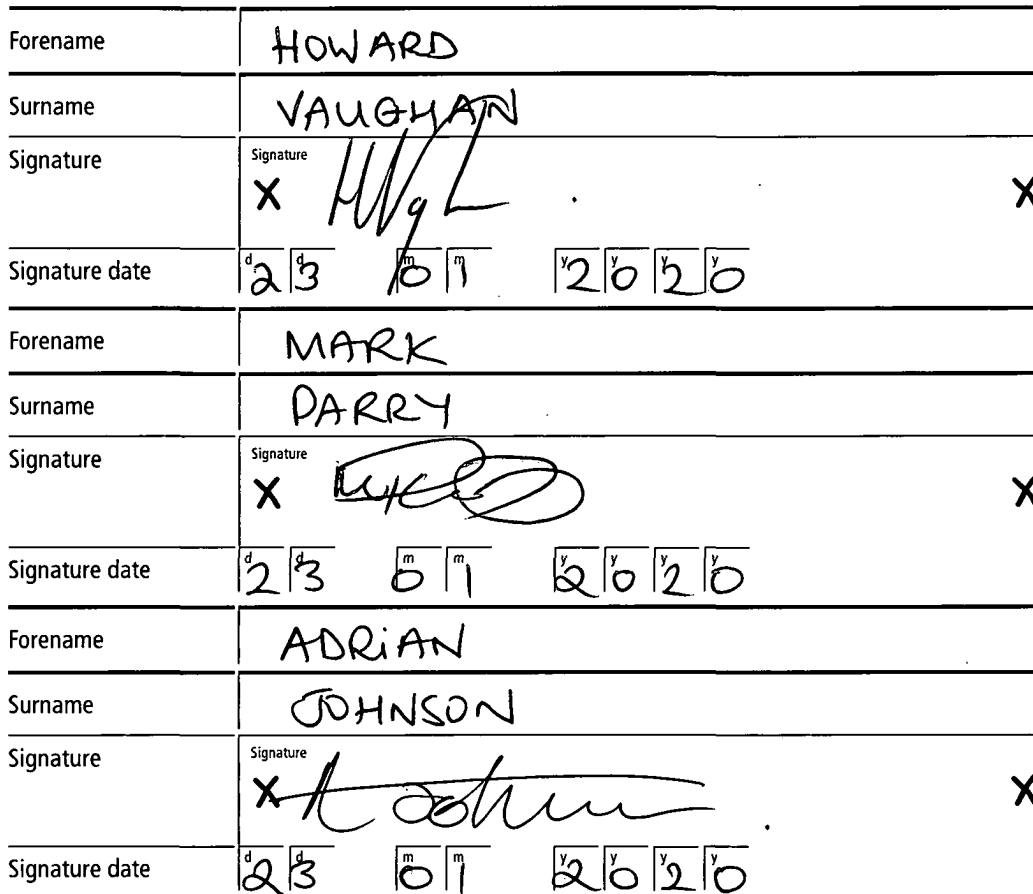 Forename HOWARD
Surname VAUGHAN
Signature Signature
X X
Signature date d2 d3 m0 m1 y2 y0 y2 y0
Forename MARK
Surname PARRY
Signature Signature
X X
Signature date d2 d3 m0 m1 y2 y0 y2 y0
Forename ADRiAN
Surname JOHNSON
Signature Signature
X X
Signature date d2 d3 m0 m1 y2 y0 y2 y0